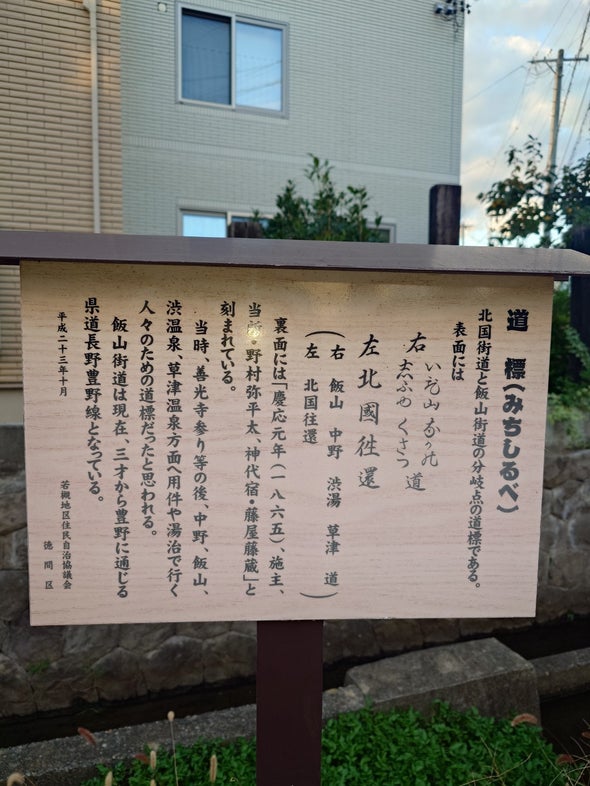 道 標(みちしるべ)
北国街道と飯山街道の分岐点の道標である。
表面には
右 いゝ山 なかの
志ぶゆ くさつ 道
左北國徃還
(右 飯山 中野 渋湯 草津 道)
(左 北国往還)
裏面には「慶応元年(一八六五)、施主、
当所・野村弥平太、神代宿・藤屋藤蔵」と
刻まれている。
当時、善光寺参り等の後、中野、飯山、
渋温泉、草津温泉方面へ用件や湯治で行く
人々のための道標だったと思われる。
飯山街道は現在、三才から豊野に通じる
県道長野豊野線となっている。
平成二十三年十月
若槻地区住民自治協議会
徳間区